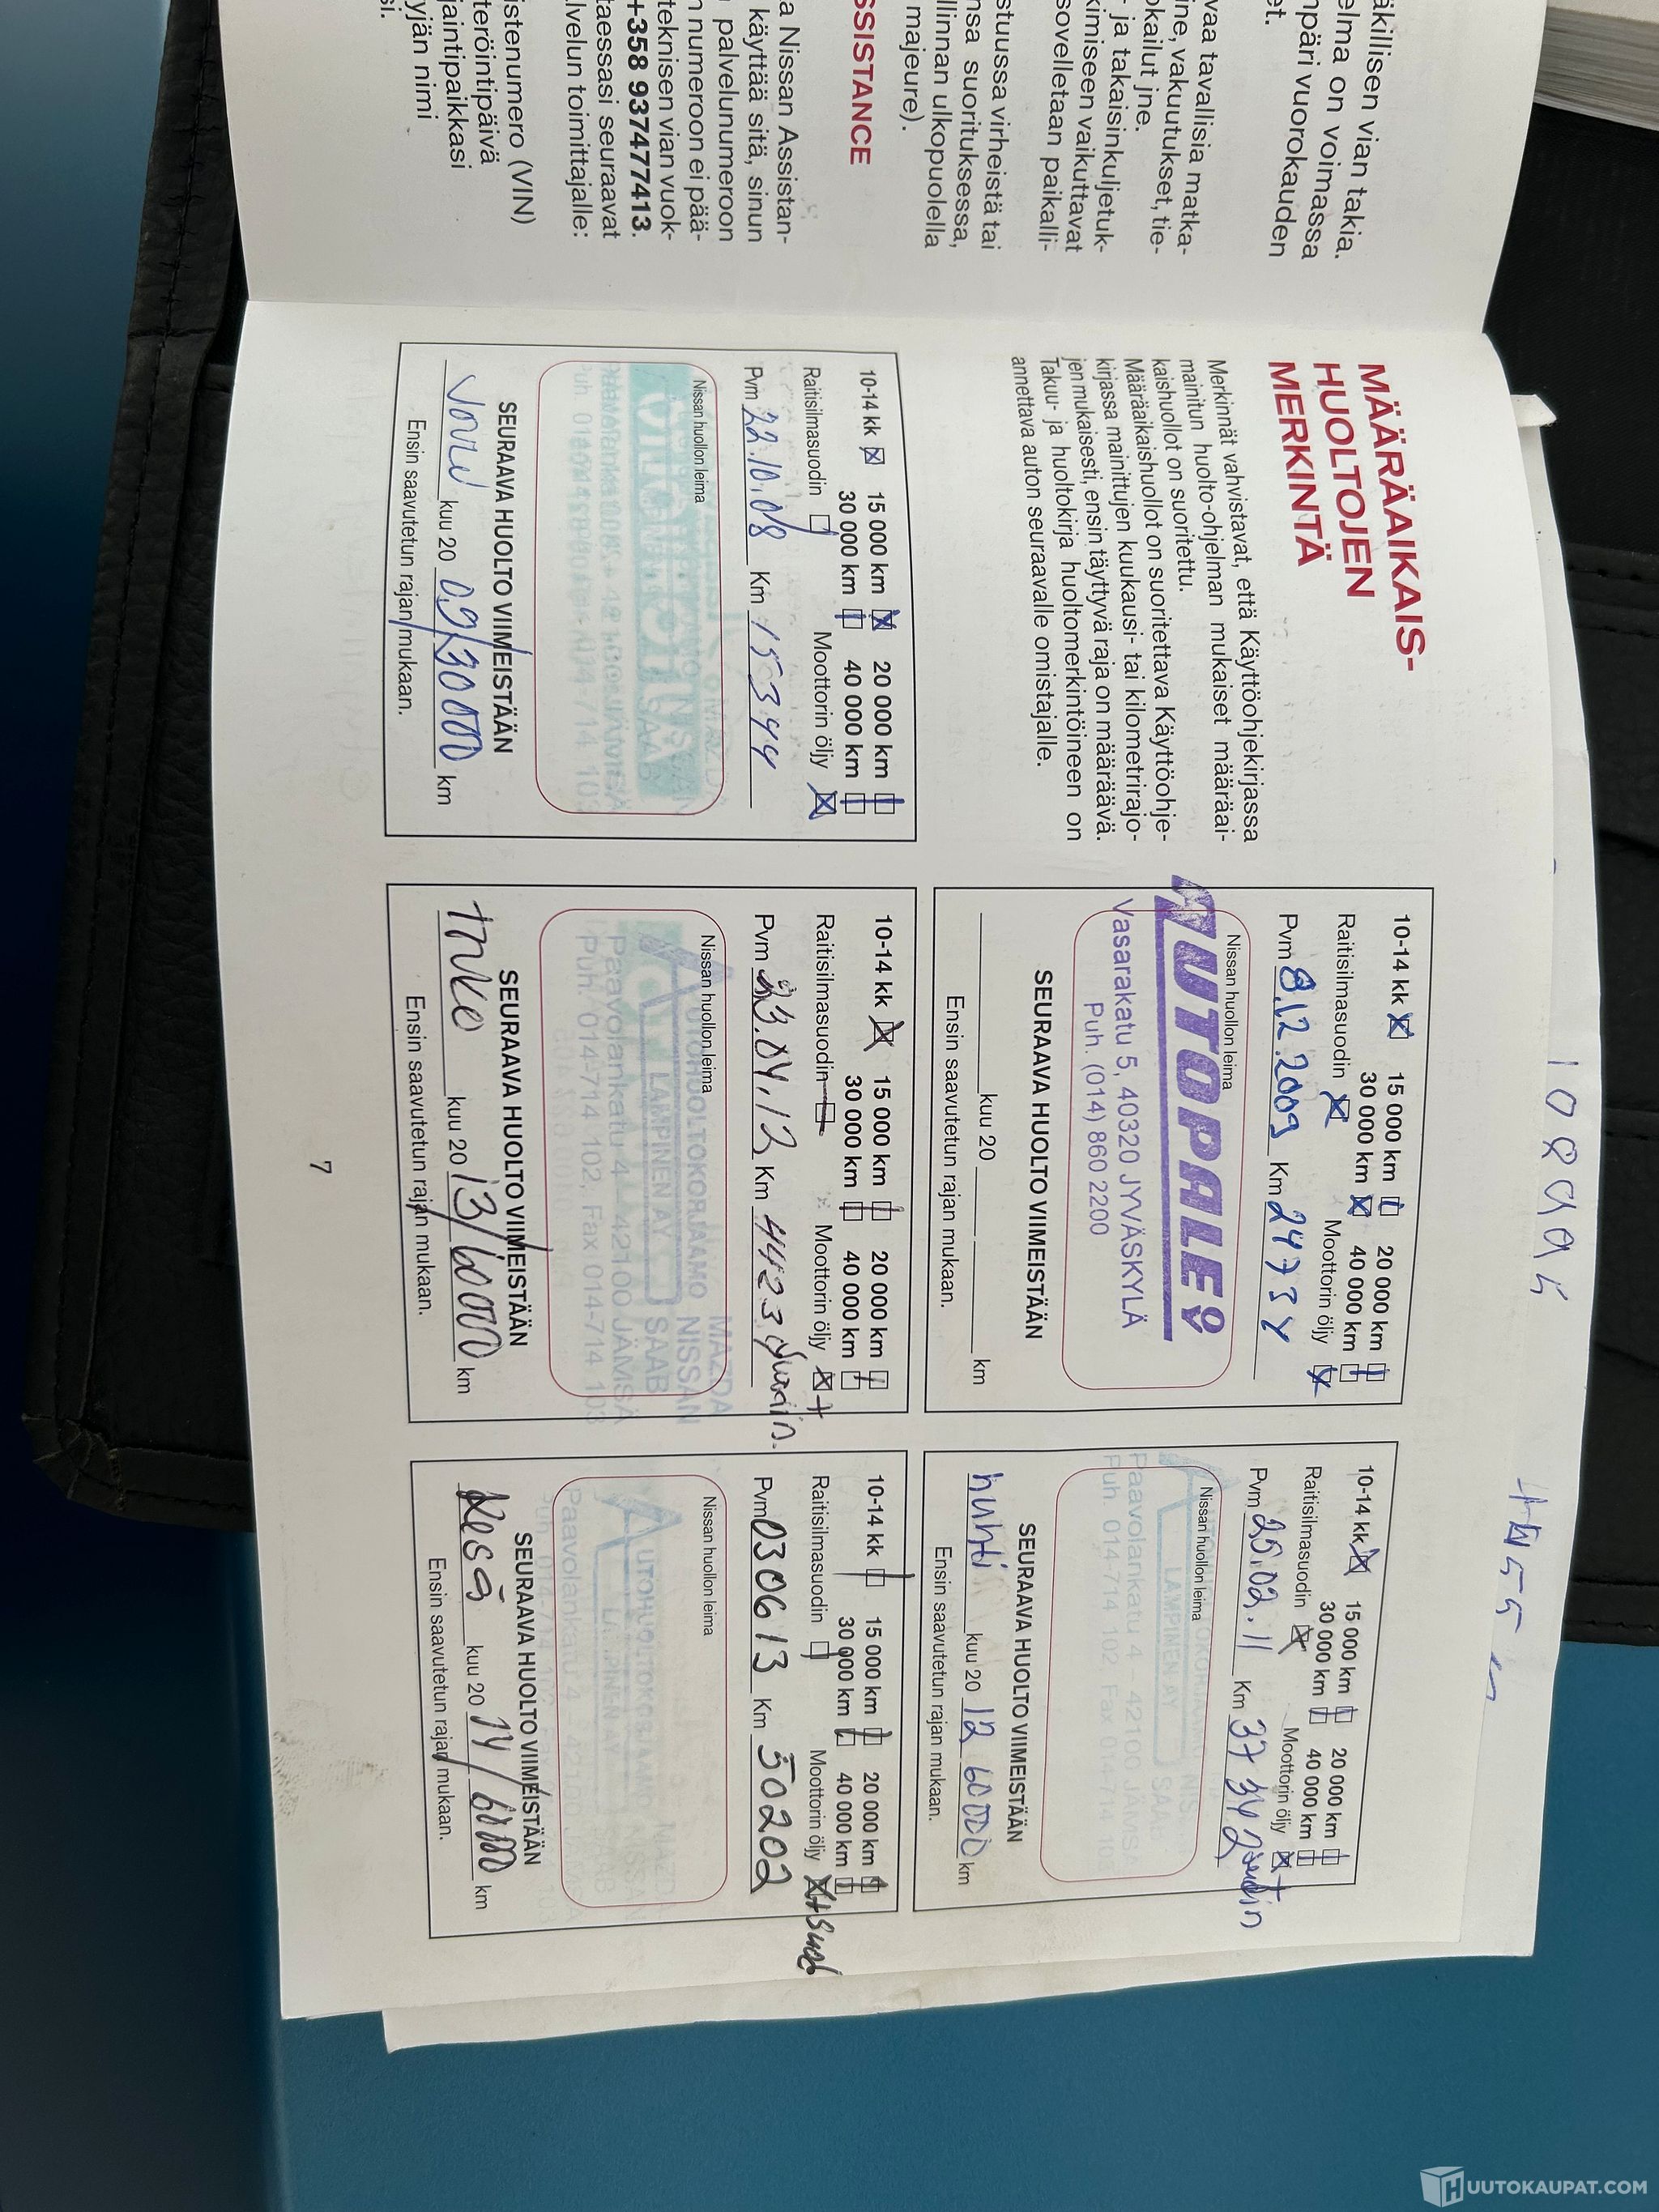 äkillisen vian takia.
elma on voimassa
npäri vuorokauden
et.
vaa tavallisia matka-
ine, vakuutukset, tie-
okailut jne.
- ja takaisinkuljetuk-
kimiseen vaikuttavat
sovelletaan paikalli-
stuussa virheistä tai
nsa suorituksessa,
llinnan ulkopuolella
majeure).
SSISTANCE
a Nissan Assistan-
käyttää sitä, sinun
palvelunumeroon
n numeroon ei pää-
teknisen vian vuok-
+358 937477413.
taessasi seuraavat
lvelun toimittajalle:
istenumero (VIN)
teröintipäivä
jaintipaikkasi
yjän nimi
si.
MÄÄRÄAIKAIS-
HUOLTOJEN
MERKINTÄ
Merkinnät vahvistavat, että Käyttöohjekirjassa
mainitun huolto-ohjelman mukaiset määräai-
kaishuollot on suoritettu.
Määräaikaishuollot on suoritettava Käyttöohje-
kirjassa mainittujen kuukausi- tai kilometrirajo-
jen mukaisesti, ensin täyttyvä raja on määräävä.
Takuu- ja huoltokirja huoltomerkintöineen on
annettava auton seuraavalle omistajalle.
10-14 kk 15 000 km 20 000 km
30 000 km 40 000 km
Raitisilmasuodin Moottorin öljy
Pvm 22.10.08 Km 15344
Nissan huollon leima
SEURAAVA HUOLTO VIIMEISTÄÄN
kuu 20 09/30000 km
Ensin saavutetun rajan mukaan.
10-14 kk 15 000 km 20 000 km
30 000 km 40 000 km
Raitisilmasuodin Moottorin öljy
Pvm 8.12.2009 Km 24734
Nissan huollon leima
AUTOPALE
Vasarakatu 5, 40320 JYVÄSKYLÄ
Puh. (014) 860 2200
SEURAAVA HUOLTO VIIMEISTÄÄN
kuu 20 km
Ensin saavutetun rajan mukaan.
10-14 kk 15 000 km 20 000 km
30 000 km 40 000 km
Raitisilmasuodin Moottorin öljy +
Pvm 23.04.12 Km 44234
Nissan huollon leima
AUTOHUOLTOKORJAAMO
LAMPINEN AY
MAZDA
NISSAN
SAAB
Paavolankatu 4 42100 JÄMSÄ
Puh. 014-714 102, Fax 014-714 103
SEURAAVA HUOLTO VIIMEISTÄÄN
kuu 20 13/60000 km
Ensin saavutetun rajan mukaan.
10-14 kk 15 000 km 20 000 km
30 000 km 40 000 km
Raitisilmasuodin Moottorin öljy +
Pvm 25.02.11 Km 37342 suodin
Nissan huollon leima
LAMPINEN AY
Paavolankatu 4 - 42100 JÄMSÄ
Puh. 014-714 102, Fax 014-714 103
SEURAAVA HUOLTO VIIMEISTÄÄN
huhti kuu 20 12 60000 km
Ensin saavutetun rajan mukaan.
10-14 kk 15 000 km 20 000 km
30 000 km 40 000 km
Raitisilmasuodin Moottorin öljy +suod
Pvm 030613 Km 50202
Nissan huollon leima
AUTOHUOLTOKORJAAMO
Paavolankatu 4
SEURAAVA HUOLTO VIIMEISTÄÄN
Kesä kuu 20 14/60000 km
Ensin saavutetun rajan mukaan.
7
HUUTOKAUPAT.COM